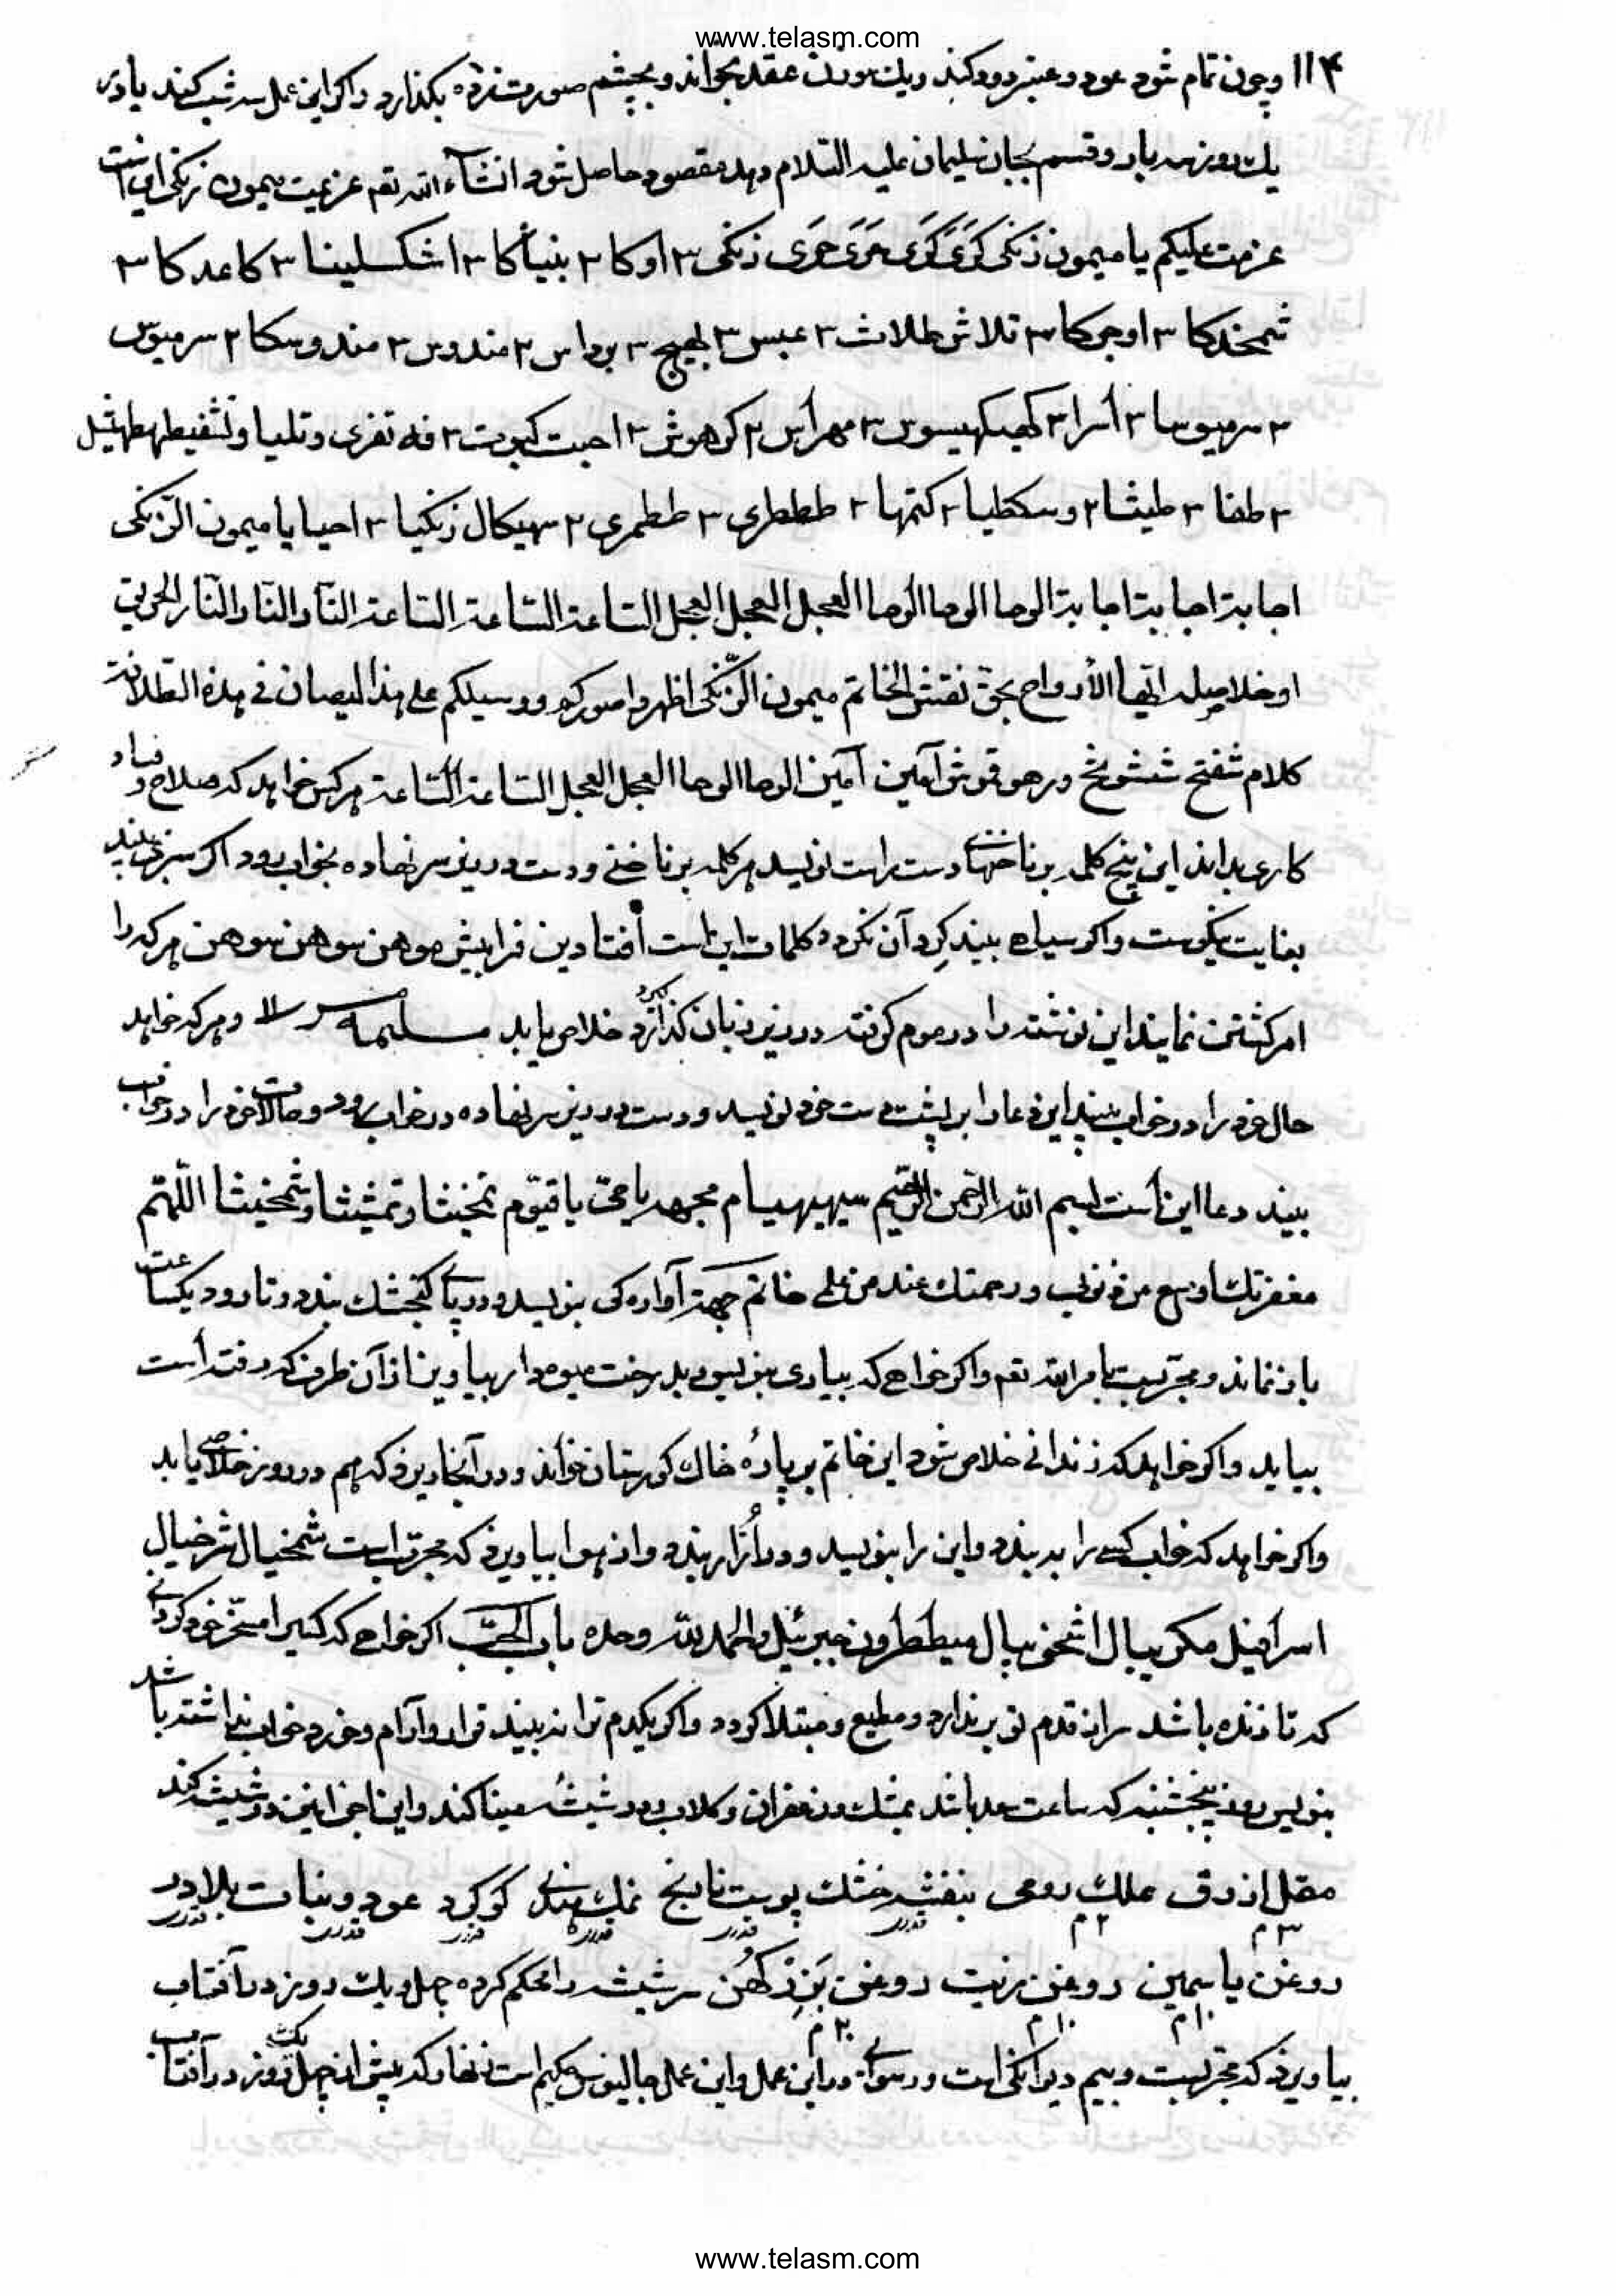 www.telasm.com
۱۱۴ وچون تمام شود عود وعنبر دود کند ویک سوزن عقد بخواند وبچشم صورت فرده بکذارد واکر این عمل سه شب کند یا در
یک روز سه بار وقسم بجان سلیمان علیه السلام دهد مقصود حاصل شود انشآء الله تعم عزیمت میمون زنکی این است
عزمت علیکم یا میمون زنکی کری کری حری حری زنکی ۳ اوکا ۳ بنیاکا ۳ اشکسلینا ۳ کاعدکا ۳
شمخدکا ۳ اوجرکا ۳ تلاش طلاث ۳ عبس ۳ لهیج ۳ برداس ۳ مندوس ۳ مندوسکا ۲ سرمیوس
۳ سرمیوسا ۳ اسرا ۳ کهیکهیسوس ۳ مهراس ۳ کرهوش ۳ احبت کبوت ۳ فه تفری وتلیا
۳ طفا ۳ طیثا ۲ وسکطیا ۲ کتمها ۲ طططری ۳ ططمری ۳ سهیکال زنکیا ۳ احیا یا میمون الزنکی
اجابة اجابة اجابة الوحا الوحا الوحا العجل العجل العجل الساعة الساعة الساعة النار النار النار
ایها الارواح بحق نقش الخاتم میمون الزنکی اظهروا صورکم وسیلکم علی هذا فی هذه
کلام شفتح ششوخ ورهو قوش آمین آمین الوحا الوحا العجل العجل الساعة الساعة هرکس خواهد که صلاح وفساد
کاری بداند این پنج کلمه بر ناخنهای دست راست نویسد هر کلمه بر ناخنی ودست در زیر سر نهاده بخواب رود اکر سبزی بیند
بغایت نیکوست واکر سیاه بیند کرد آن نکردد کلمات این است افتادین فرابیش موهن سوهن سوهن هرکه را
امر کشتن نمایند این نوشته را در موم کرفته در زیر زبان کذارد خلاص یابد وهرکه خواهد
حال خود را در خواب بیند این دعا را بر پشت دست خود نویسد ودست در زیر سر نهاده در خواب رود وحالات خود را در خواب
بیند دعا این است بسم الله الرحمن الرحیم سیهیهیام مجرهد یا حی یا قیوم تخیثا وتمثیثا وشمخیثا اللهم
مغفرتک اوسع من ذنوبی ورحمتک عند من علی خاتم جهة آواره کی بنویسد ودر پای کنجشک بندد وتا رود یکساعت
باز نماند ومجربست بامر الله تعم واکر خواهی که بیاری بنویس وبدرخت میوه دار بیاویز از آن طرف که رفته است
بیاید واکر خواهد که زندانی خلاص شود این خاتم بر پارهٔ خاک کورستان خواند ودر آنجا ریزد که هم در روز خلاصی یابد
واکر خواهد که خواب کسی را به بندد این را بنویسد ودر ازار بندد واز هوا بیاویزد که مجربست شمخیال شرخیال
اسرافیل مکربیال اشخی بیال میططرون جبرئیل والحمد لله وحده باب الحب اکر خواهی که کسیرا مسخر خود کردانی
که تا زنده باشد سر از قدم تو بر ندارد ومطیع ومبتلا کردد واکر یکدم ترا نه بیند قرار وآرام وخورد وخواب نداشته باشد
بنویس روز پنجشنبه که ساعت سعد باشد بمشک وزعفران وکلاب ودر شیشهٔ مینا کند واین اجزا نیز در شیشه کند
مقل ازرق علک رومی بنفشه خشک پوست نارنج نمک هندی کوکرد عود ونبات بلادر
۳ م ۲ م قدری قدری قدری قدری قدری قدری
روغن یاسمین روغن زیت روغن بزرکهن سر شیشه را محکم کرده چهل ویک روز در آفتاب
۱۰ م ۱۰ م ۲۰ م
بیاویزد که مجربست وبیم دیوانکی است ورسوائی در این عمل واین عمل جالینوس حکیم است زنهار که پیش از چهل ویک روز در آفتاب
www.telasm.com